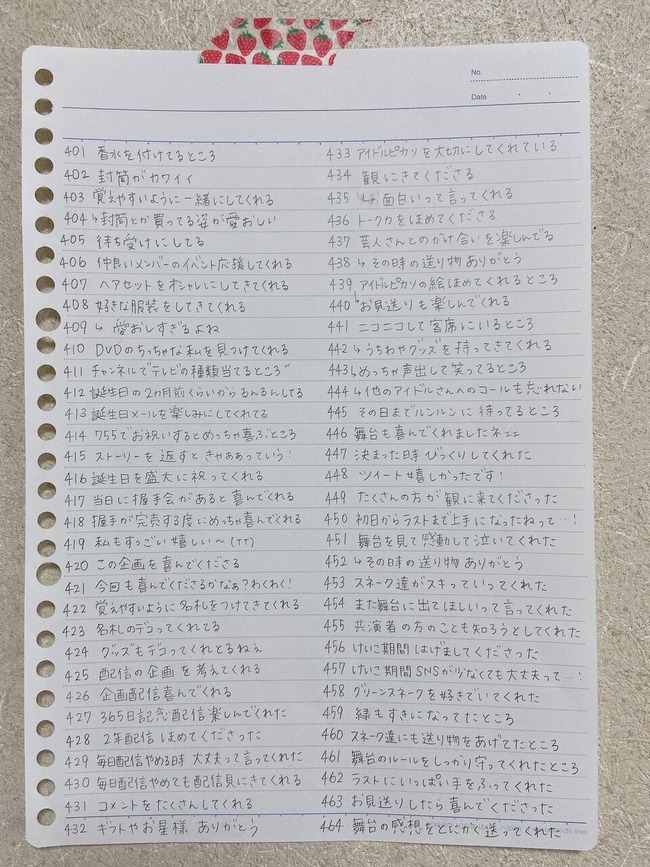 No.
Date
401 香水を付けてるところ
402 封筒がカワイイ
403 覚えやすいように一緒にしてくれる
404 ↳封筒とか買ってる姿が愛おしい
405 待ち受けにしてる
406 仲良いメンバーのイベント応援してくれる
407 ヘアセットをオシャレにしてきてくれる
408 好きな服装をしてきてくれる
409 ↳ 愛おしすぎるよね
410 DVDのちっちゃな私を見つけてくれる
411 チャンネルでテレビの種類当てるところ
412 誕生日の2か月前くらいからるんるんしてる
413 誕生日メールを楽しみにしてくれてる
414 755でお祝いするとめっちゃ喜ぶところ
415 ストーリーを返すときゃああっていう!
416 誕生日を盛大に祝ってくれる
417 当日に握手会があると喜んでくれる
418 握手が完売する度にめっちゃ喜んでくれる
419 私もすっごい嬉しい〜(TT)
420 この企画を喜んでくださる
421 今回も喜んでくださるかなぁ?わくわく!
422 覚えやすいように名札をつけてきてくれる
423 名札のデコってくれてる
424 グッズもデコってくれとるねぇ
425 配信の企画を考えてくれる
426 企画配信喜んでくれる
427 365日記念配信楽しんでくれた
428 2年配信ほめてくださった
429 毎日配信やめる時大丈夫って言ってくれた
430 毎日配信やめても配信見にきてくれる
431 コメントをたくさんしてくれる
432 ギフトやお星様ありがとう
433 アイドルピカソを大切にしてくれている
434 観にきてくださる
435 ↳面白いって言ってくれる
436 トーク力をほめてくださる
437 芸人さんとのかけ合いを楽しんでる
438 ↳その時の送り物ありがとう
439 アイドルピカソの絵ほめてくれるところ
440 お見送りも楽しんでくれる
441 ニコニコして客席にいるところ
442 ↳うちわやグッズを持ってきてくれる
443 ↳めっちゃ声出して笑ってるところ
444 ↳他のアイドルさんへのコールも忘れない
445 その日までルンルンに待ってるところ
446 舞台も喜んでくれましたネェェ
447 決まった時びっくりしてくれた
448 ツイート嬉しかったです!
449 たくさんの方が観に来てくださった
450 初日からラストまで上手になったねって…!
451 舞台を見て感動して泣いてくれた
452 ↳その時の送り物ありがとう
453 スネーク達がスキっていってくれた
454 また舞台に出てほしいって言ってくれた
455 共演者の方のことも知ろうとしてくれた
456 けいこ期間はげましてくださった
457 けいこ期間SNSが少なくても大丈夫って…!
458 グリーンスネークを好きでいてくれた
459 緑もすきになってたところ
460 スネーク達にも送り物をあげてたところ
461 舞台のルールをしっかり守ってくれたところ
462 ラストにいっぱい手をふってくれた
463 お見送りしたら喜んでくださった
464 舞台の感想をとにかく送ってくれた